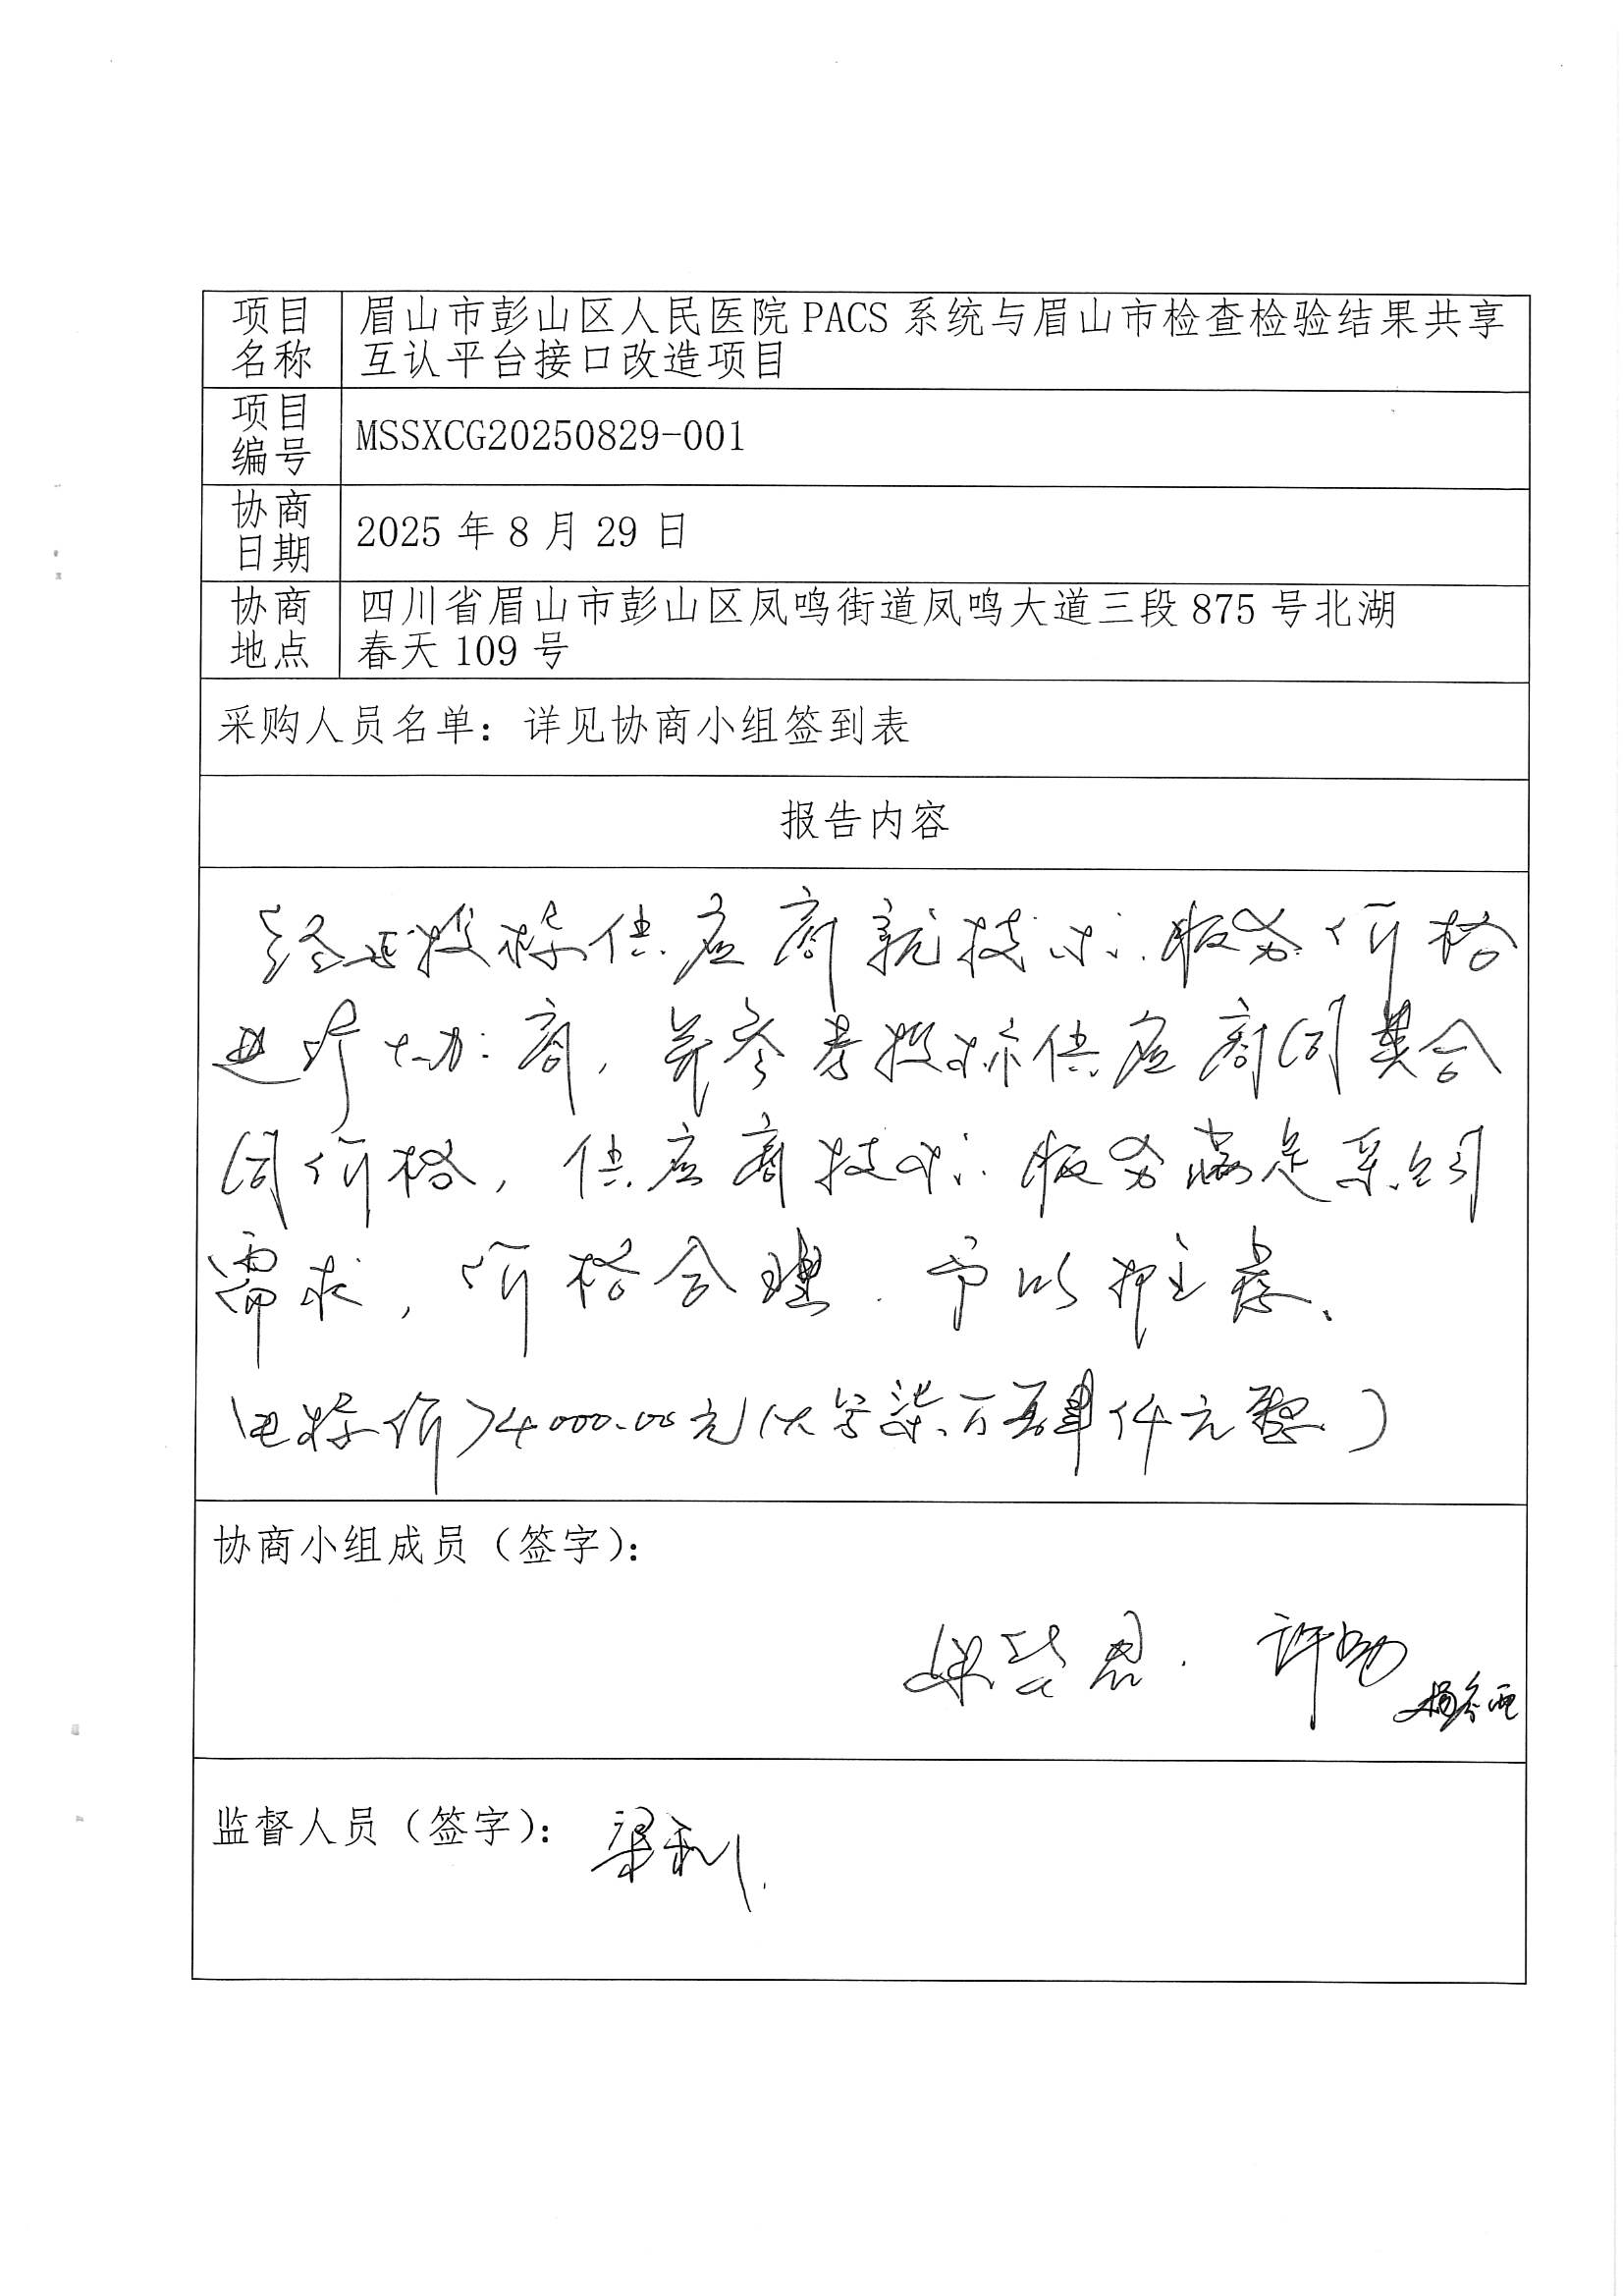 项目
名称
眉山市彭山区人民医院 PACS 系统与眉山市检查检验结果共享
互认平台接口改造项目
项目
编号
MSSXCG20250829-001
协商
日期
2025 年 8 月 29 日
协商
地点
四川省眉山市彭山区凤鸣街道凤鸣大道三段 875 号北湖
春天 109 号
采购人员名单：详见协商小组签到表
报告内容
经与投标供应商就技术、服务、价格
进行协商，并参考投标供应商同类合
同价格，供应商技术、服务满足采购
需求，价格合理，予以推荐。
中标价74000.00元（大写柒万肆仟元整）
协商小组成员（签字）：
许
监督人员（签字）：
梁利